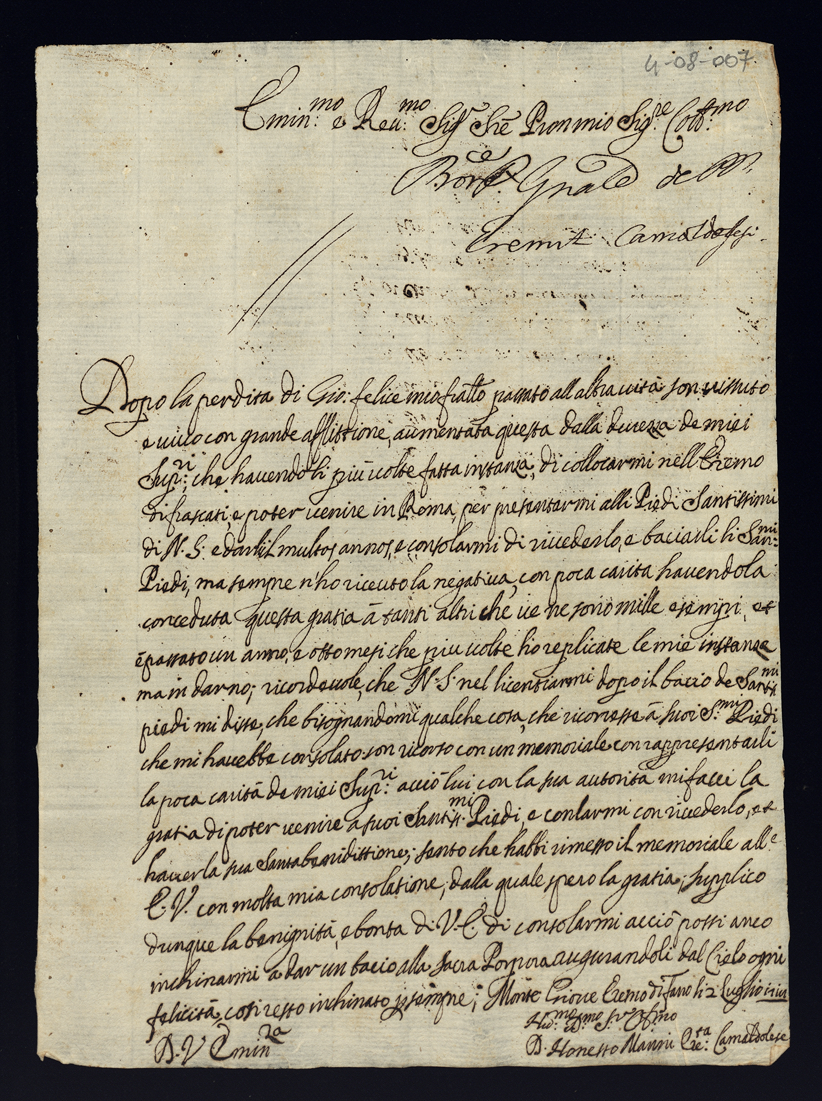 4-08-007
Emin:mo e Reu:mo Sig.r
Eremit Camaldolesi
Dopo la perdita di Gio: felice mio frãllo passato all'altra uita son uissuto
e uiuo con grande afflittione, aumentata questa dalla durezza de miei
Sup:ri; che hauendoli più uolte fatta instanza, di collocarmi nell'Eremo
di frascati, e poter uenire in Roma, per presentarmi alli Piedi Santissimi
di N. S. e darli il multos annos, e consolarmi di riuederlo, e baciarli li San:mi
Piedi, ma sempre n'ho riceuto la negatiua, con poca carità hauendola
conceduta questa gratia à tanti altri che ue ne sono mille esempri, et
è passato un anno, e otto mesi che più uolte ho replicate le mie instanze
ma indarno; ricordeuole, che N. S. nel licentiarmi dopo il bacio de Santi:mi
piedi mi disse, che bisognandomi qualche cosa, che ricorresse à suoi S.mi Piedi
che mi hauebbe consolato son ricorso con un memoriale con rappresentarli
la poca carità de miei Sup:ri acciò lui con la sua autorità mi facci la
gratia di poter uenire a suoi Santis:mi Piedi, e conlarmi con riuederlo, et
hauer la sua Santa benidittione; sento che habbi rimesso il memoriale all'
E. V. con molta mia consolatione, dalla quale spero la gratia; supplico
dunque la benignità, e bontà di V. E. di consolarmi acciò possi anco
inchinarmi a dar un bacio alla Sacra Porpora augurandoli dal Cielo ogni
felicità, così resto inchinato p sempre; Monte Gioue Eremo di Fano li 2 Luglio
D. V. Emin:za
D. Honesto Manni Ere:ta Camaldolese